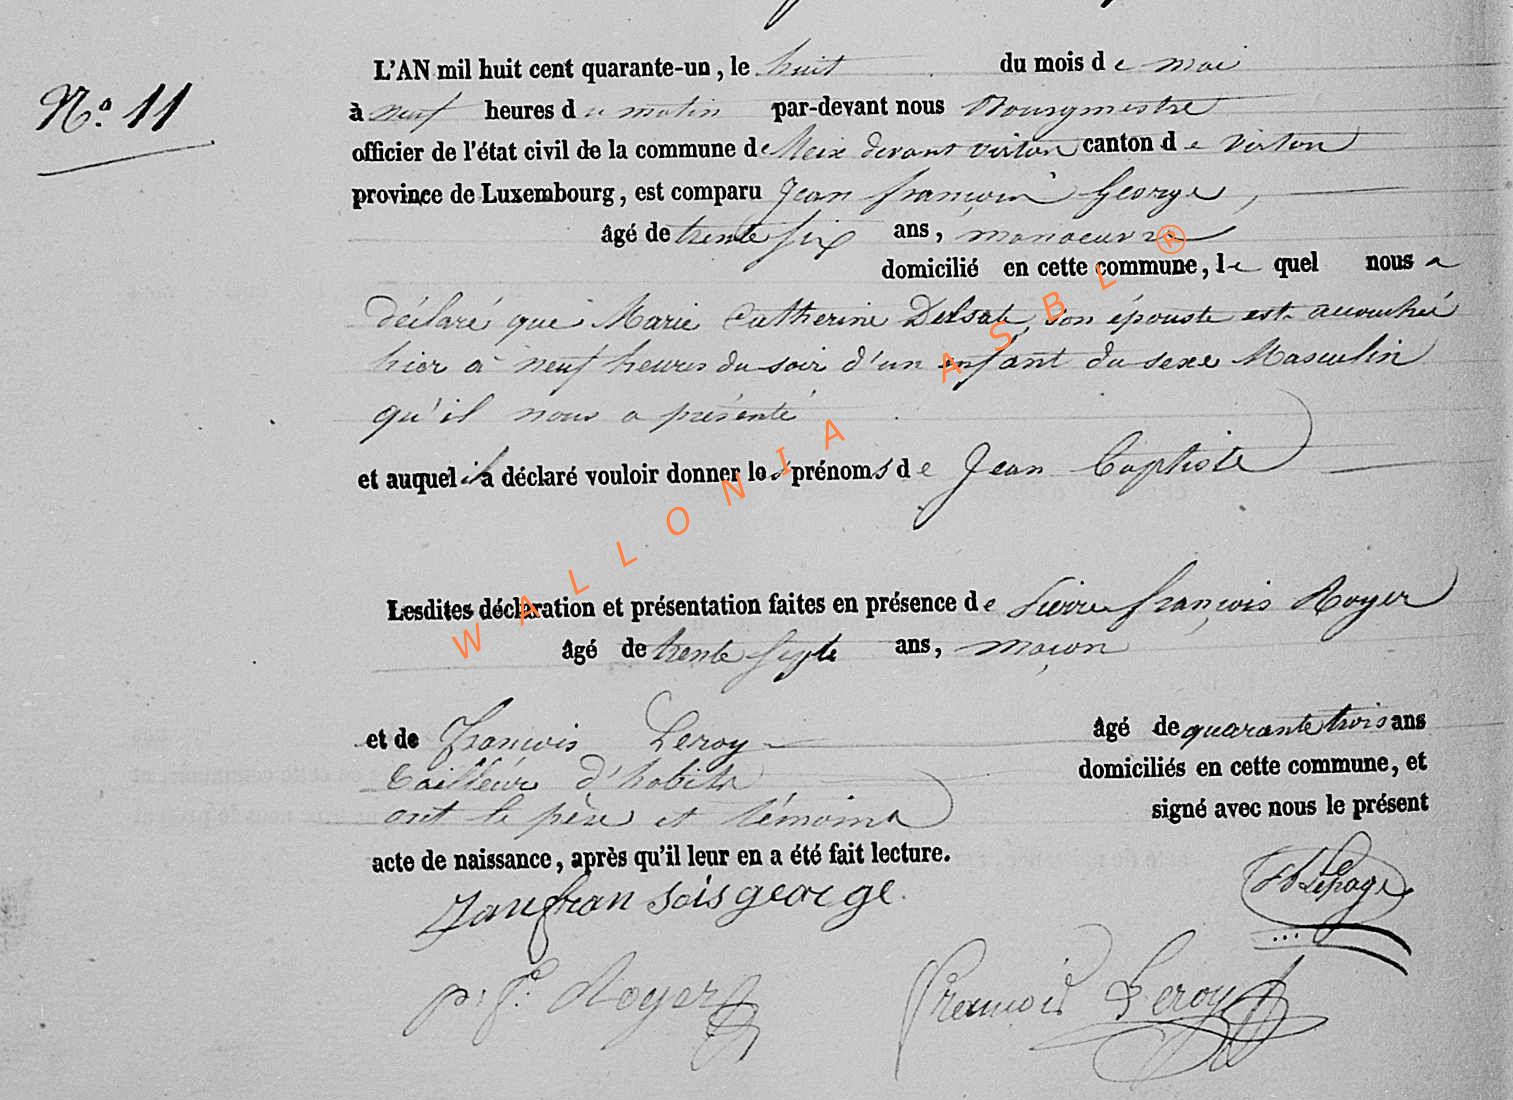 N.o 11
L'AN mil huit cent quarante-un, le huit du mois de mai
à neuf heures du matin par-devant nous Bourgmestre
officier de l'état civil de la commune de Meix devant virton canton de virton
province de Luxembourg, est comparu Jean françois George,
âgé de trente six ans, manoeuvre
domicilié en cette commune, le quel nous a
déclaré que Marie Catherine Delsate, son épouste est accouchée
hier à neuf heures du soir d'un enfant du sexe Masculin
qu'il nous a présenté
et auquel il a déclaré vouloir donner les prénoms de Jean Baptiste
Lesdites déclaration et présentation faites en présence de Pierre françois Royer
âgé de trente septe ans, maçon
et de françois Leroy âgé de quarante trois ans
tailleur d'habits domiciliés en cette commune, et
ont le père et témoins signé avec nous le présent
acte de naissance, après qu'il leur en a été fait lecture.
Janfran sois george.
Lepage
p: f: Royer
francois Leroy
WALLONIA ASBL ®